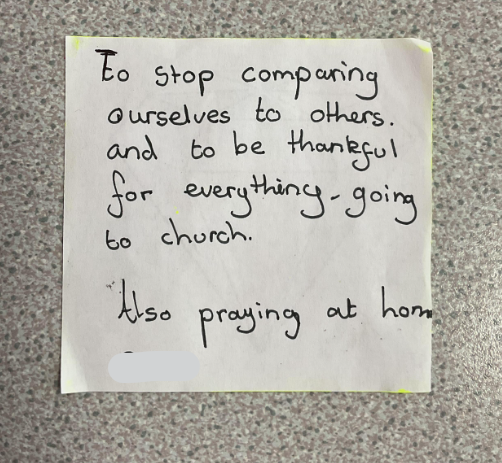 To stop comparing
ourselves to others.
and to be thankful
for everything-going
to church.
Also praying at hom